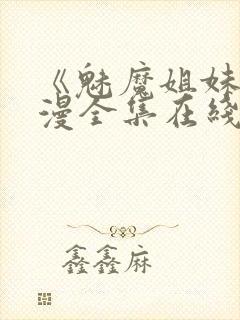 《魅魔姐妹
漫全集在綫
鑫鑫麻